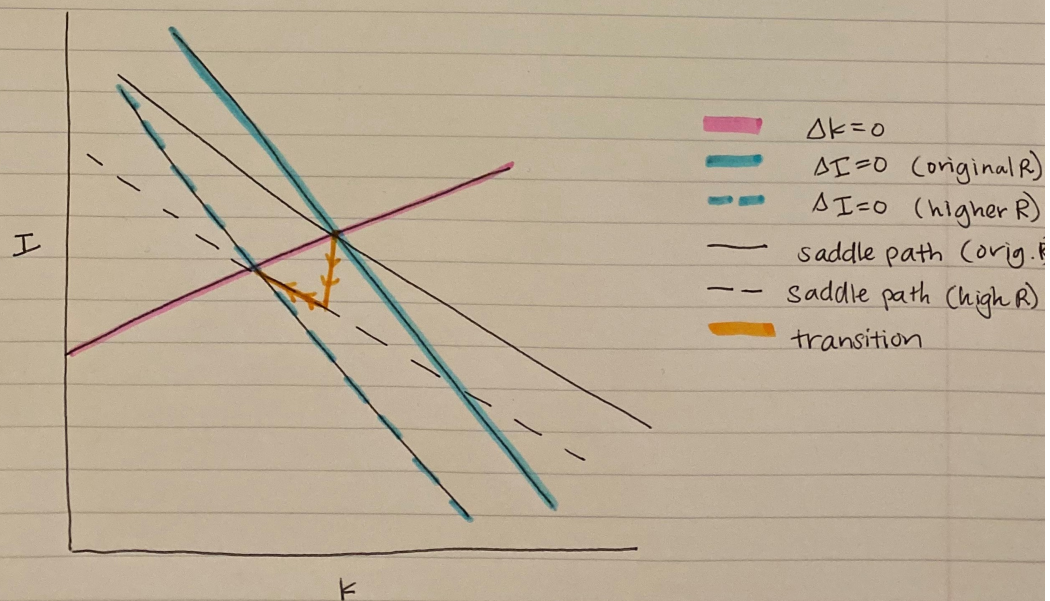 I
k
Δk=0
ΔI=0 (original R)
ΔI=0 (higher R)
saddle path (orig.R
saddle path (high R)
transition